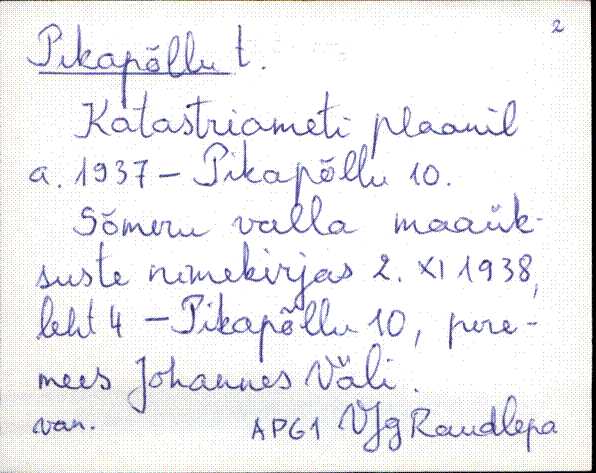 2
Pikapõllu t.
Katastriameti plaanil
a. 1937 – Pikapõllu 10.
Sõmeru valla maaük-
suste nimekirjas 2. XI 1938,
leht 4 – Pikapõllu 10, pere-
mees Johannes Väli.
van. APG1 VJg Raudlepa